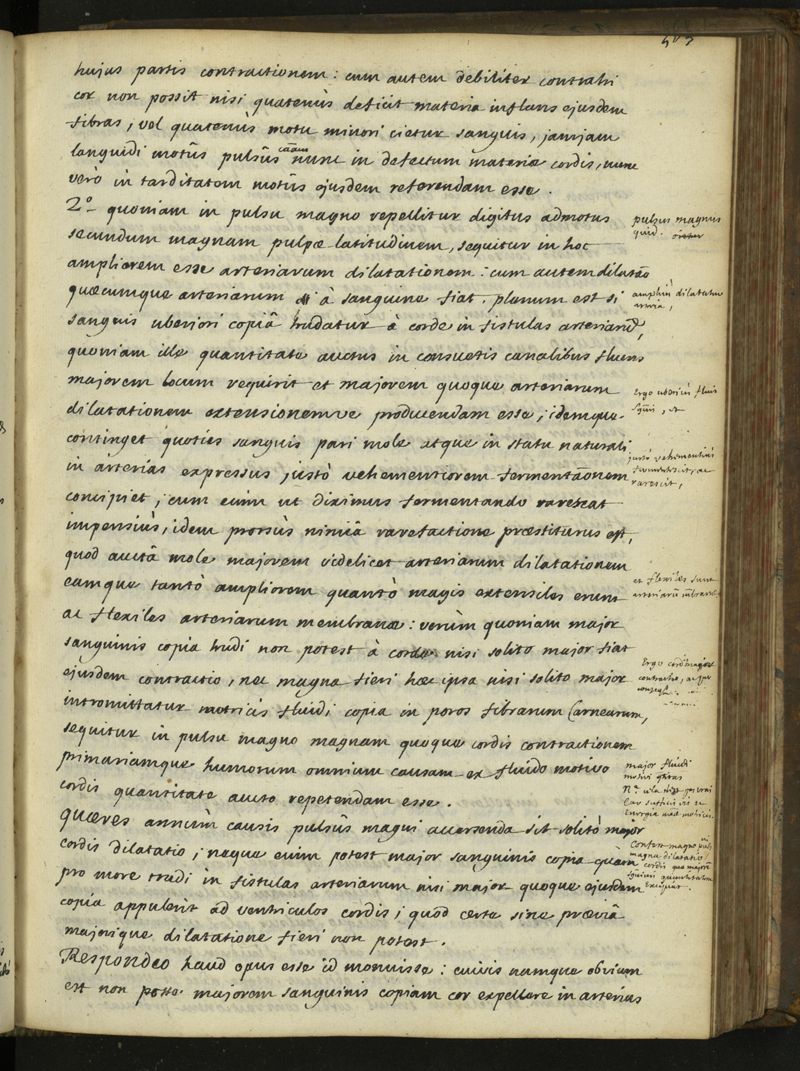 hujus partis contractionem: cum autem debiliter contrahi
cor non possit nisi quatenùs deficit materia inflans ejusdem
fibras, vel quatenùs motu minori cietur sanguis, jamjam
languidi motûs pulsûs caãm nunc in defectum materiæ cordis, nunc
verò in tarditatem motûs ejusdem referendam esse.
2.º quoniam in pulsu magno repellitur digitus admotus
secundum magnam pulpæ latitudinem, sequitur in hoc
ampliorem esse arteriarum dilatationem: cum autem dilatão
quæcumque arteriarum à sanguine fiat. planum est si
sanguis uberiori copiâ trudatur è corde in fistulas arteriarũ,
quoniam ille quantitate auctus in consuetis canalibus fluens
majorem locum requirit et majorem quoque arteriarum
dilatationem extensionemve producendam esse, idemque
continget quoties sanguis pari mole atque in statu naturali
in arterias expressus, justò vehementiorem fermentãonem
concipiet, cum enim ut diximus fermentando rarescat
impensiùs, idem prorsùs nimiâ rarefactione præstiturus est,
quod auctâ mole majorem videlicet arteriarum dilatationem
eamque tantò ampliorem quantò magis extensiles erunt
ac flexiles arteriarum membranæ: verùm quoniam major
sanguinis copia trudi non potest à corde nisi solito major fiat
ejusdem contractio, nec magna fieri hæc ipsa nisi solito major
intromittatur motricis fluidi copia in poros fibrarum carnearum,
sequitur in pulsu magno magnam quoque cordis contractionem
primariamque humorum omnium causam ex fluido motivo
cordis quantitate aucto repetendam esse.
Quæres annùm causis pulsûs magni accersenda sit solitò major
cordis dilatatio; neque enim potest major sanguinis copia quàm
pro more trudi in fistulas arteriarum nisi major quoque ejusdem
copia appulerit ad ventriculos cordis; quod certe sine præviâ
majorique dilatatione fieri non potest.
Respondeo haud opus esse id monuisse: cuivis namque obvium
est non posse majorem sanguinis copiam cor expellere in arterias
pulsus magnus
quid. oritur
ampliùs dilatatur
arteria,
Ergo uberiùs fluit
sguis, et
justò vehementiùs
fermentescit, ac
rarescit,
et flexiles sunt
arteriarũ mbranæ
Ergo cordis major
contractio, ac per
conseq.
major fluidi
motivi
magna dilatatio
cordis quæ majorẽ
sguinis quantitatem
excipiat.